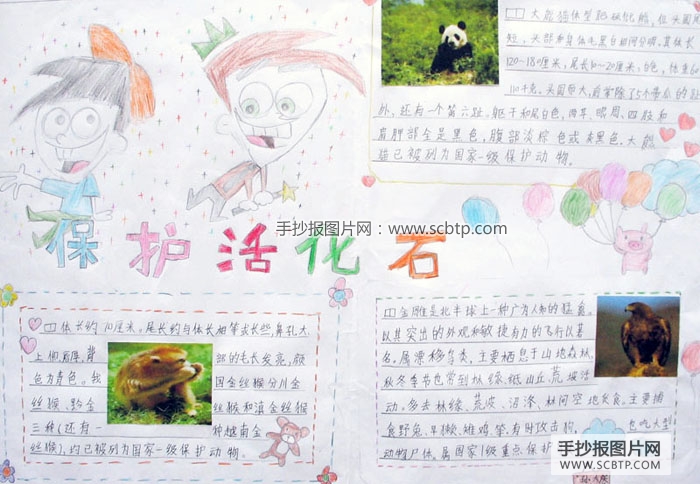 大熊猫体型肥硕似熊,但头圆尾
短,头部和身体毛黑白相间分明,其体长
120-180厘米,尾长10—20厘米,白色,体重60
110千克。头圆而大,前掌除了5个带爪的趾
外,还有一个第六趾。躯干和尾白色,两耳、眼周、四肢和
肩胛部全是黑色,腹部淡棕色或灰黑色。大熊
猫已被列为国家一级保护动物。
手抄报图片网:www.scbtp.com
保护活化石
体长约70厘米。尾长约与体长相等或长些,鼻孔大
上仰,唇厚,背部的毛长发亮,颜
色为青色。我国金丝猴分川金
丝猴、黔金丝猴和滇金丝猴
三种(还有一种越南金
丝猴),均已被列为国家一级保护动物。
金雕是北半球上一种广为人知的猛禽。
以其突出的外观和敏捷有力的飞行以著
名。属漂移鸟类,主要栖息于山地森林,
秋冬季节也常到林缘、低山丘、荒坡活
动。多去林缘、荒坡、沼泽、林间空地食,主要捕
食野兔、旱獭、雉鸡等,有时攻击狗,也吃大型
动物尸体。属国家1级重点保护
手抄报图片网
WWW.SCBTP.COM